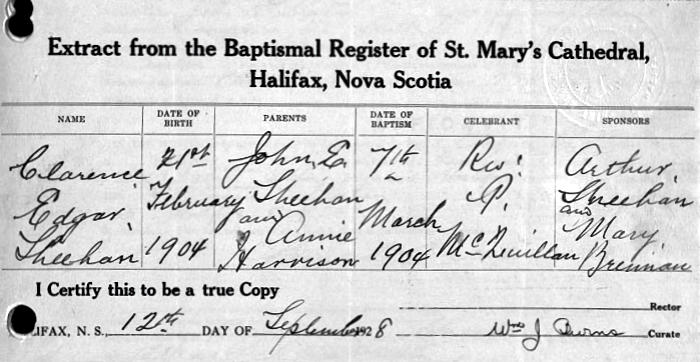 Extract from the Baptismal Register of St. Mary's Cathedral,
Halifax, Nova Scotia
NAME DATE OF BIRTH PARENTS DATE OF BAPTISM CELEBRANT SPONSORS
Clarence 21st John Ed. 7th Rev. Arthur
Edgar February Sheehan and March P. Sheehan and
Sheehan 1904 Annie Harrison 1904 McQuillan Mary Brennan
I Certify this to be a true Copy
Rector
HALIFAX, N. S., 12th DAY OF September 1928 Wm J Burns Curate